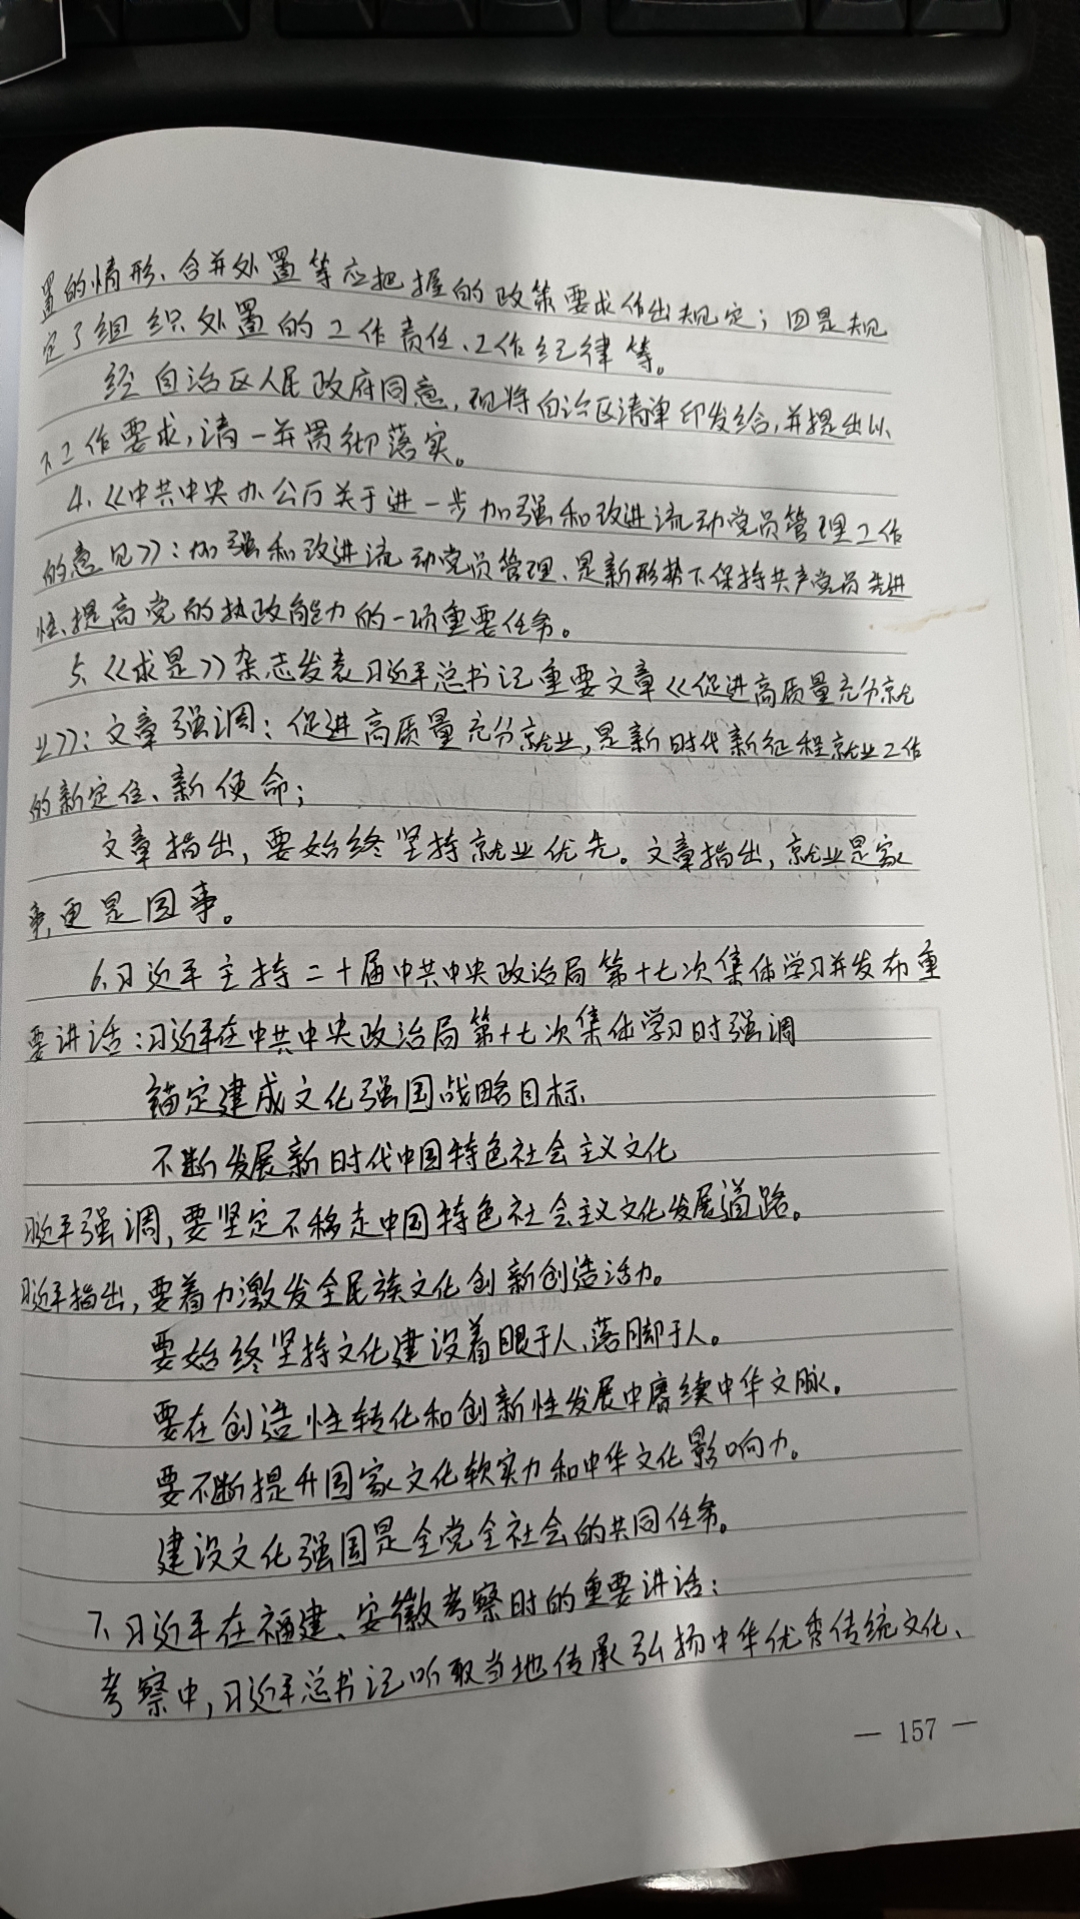 置的情形、合并处置等应把握的政策要求作出规定；四是规
定了组织处置的工作责任、工作纪律等。
经自治区人民政府同意，现将自治区清单印发给，并提出以
下工作要求，请一并贯彻落实。
4、《中共中央办公厅关于进一步加强和改进流动党员管理工作
的意见》：加强和改进流动党员管理、是新形势下保持共产党员先进
性、提高党的执政能力的一项重要任务。
5、《求是》杂志发表习近平总书记重要文章《促进高质量充分就
业》：文章强调：促进高质量充分就业，是新时代新征程就业工作
的新定位、新使命；
文章指出，要始终坚持就业优先。文章指出，就业是家
事，更是国事。
6、习近平主持二十届中共中央政治局第十七次集体学习并发布重
要讲话：习近平在中共中央政治局第十七次集体学习时强调
锚定建成文化强国战略目标
不断发展新时代中国特色社会主义文化
习近平强调，要坚定不移走中国特色社会主义文化发展道路。
习近平指出，要着力激发全民族文化创新创造活力。
要始终坚持文化建设着眼于人、落脚于人。
要在创造性转化和创新性发展中赓续中华文脉。
要不断提升国家文化软实力和中华文化影响力。
建设文化强国是全党全社会的共同任务。
7、习近平在福建、安徽考察时的重要讲话：
考察中，习近平总书记听取当地传承弘扬中华优秀传统文化、
— 157 —